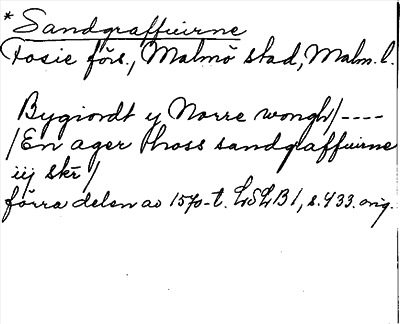 * Sandgraffuirne
Fosie förs., Malmö stad, Malm. l.
Bygiordt y Norre wongh/----
/En ager hoss sandgraffuirne
iij skr/
förra delen av 1570-t. LSLB 1, s. 433. orig.